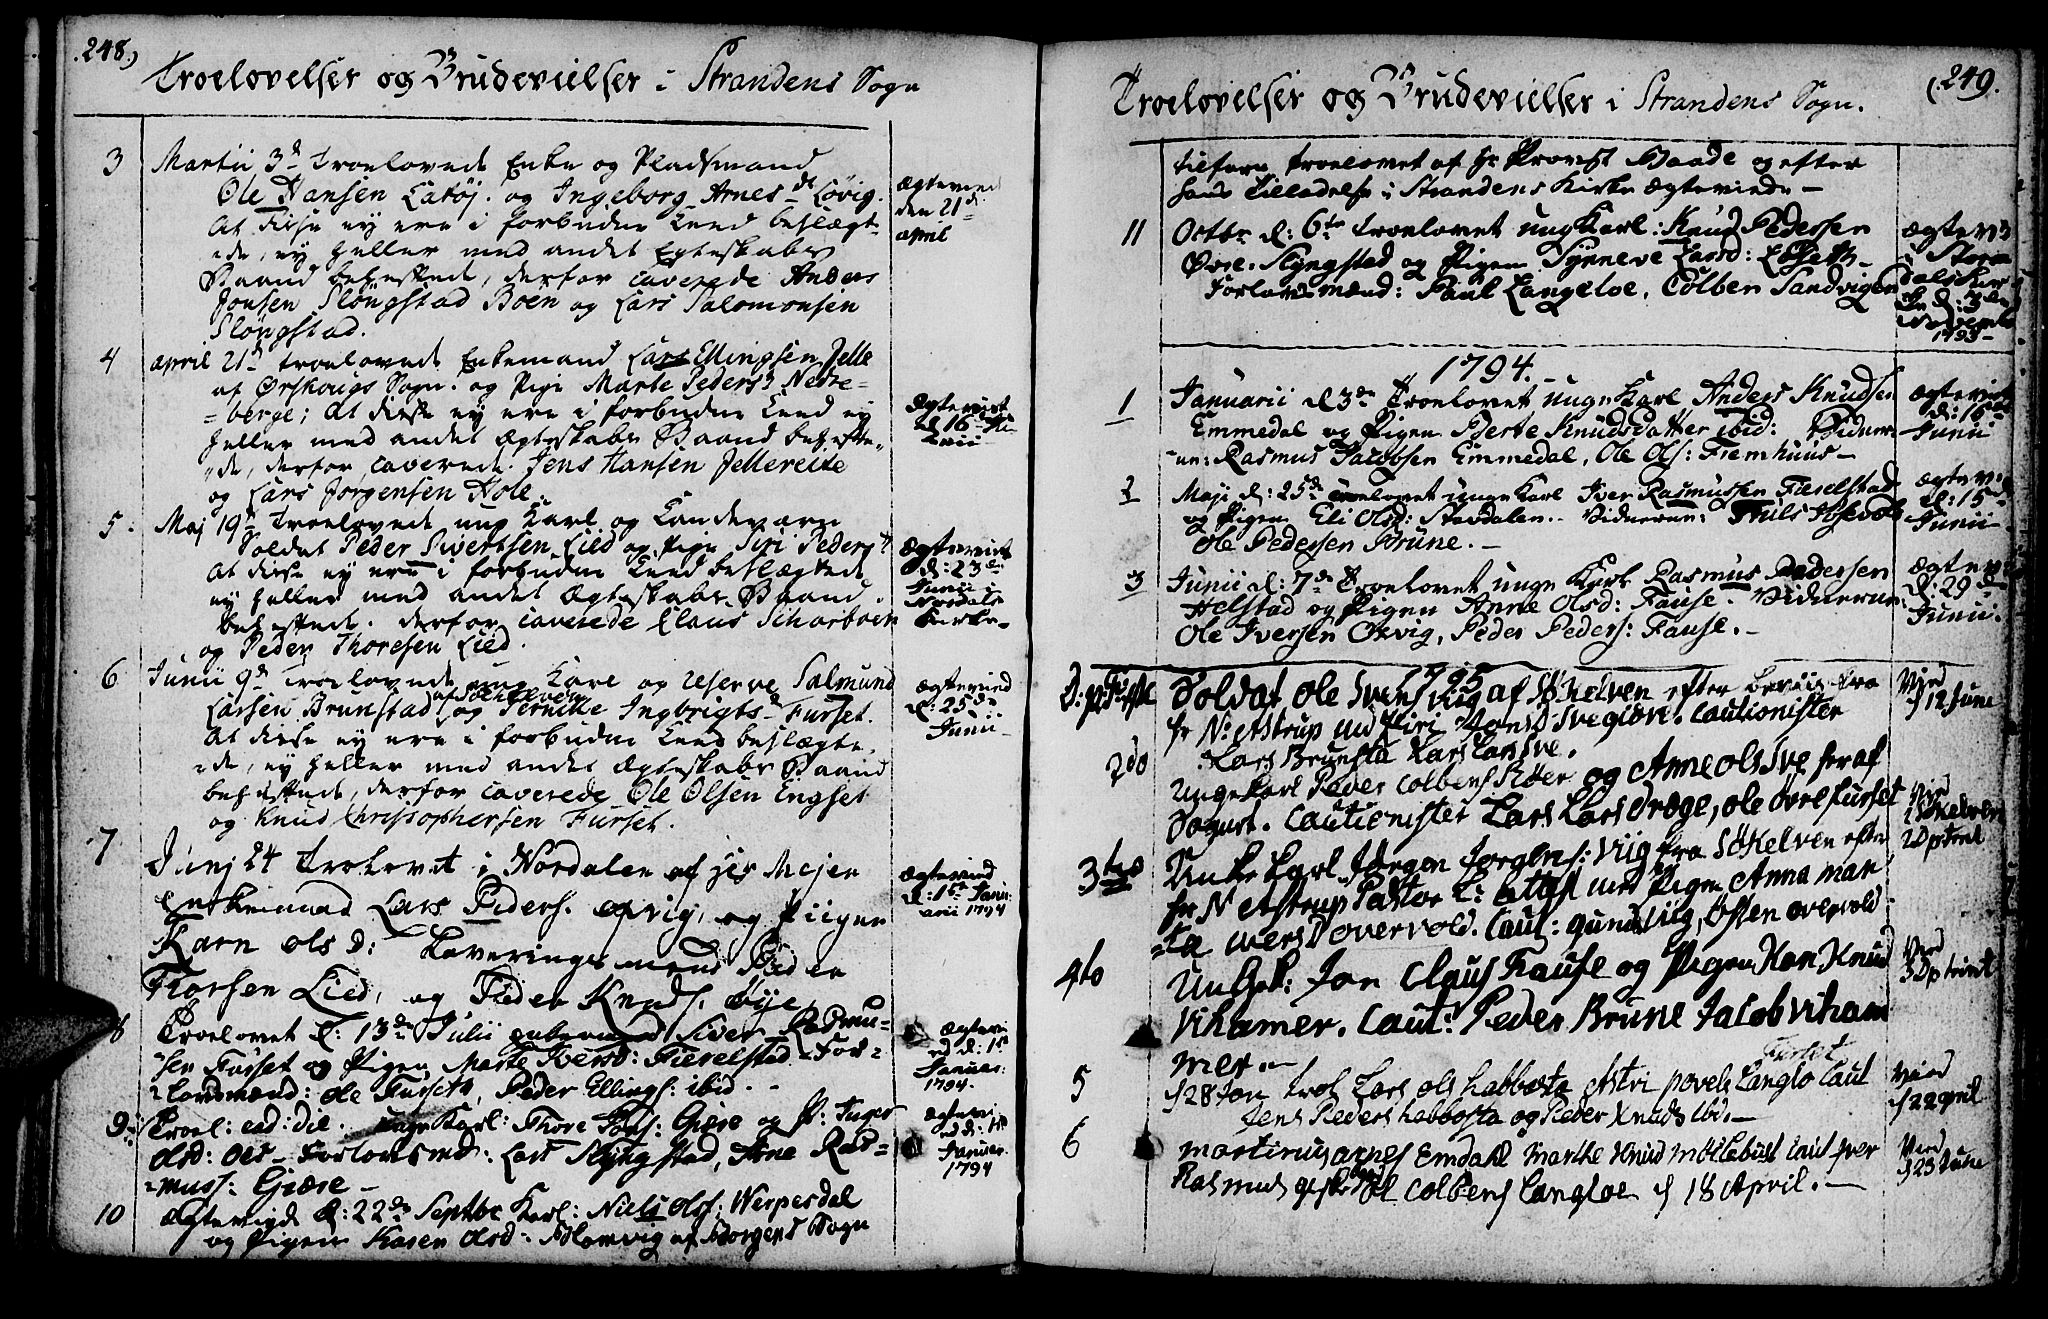 .248.)
Troelovelser og Brudevielser i Strandens Sogn
3
Martii 3d troelovede Enke og Pladsmand
Ole Hansen Latøj. og Ingeborg Arnes dt Løvig.
At disse ej ere i forbudne Leed beslægt-
ede, ej heller med andet Egteskabs
Baand behæftede, derfor caverede Anders
Jonsen Sløngstad Boen og Lars Salomonsen
Sløngstad.
Ægteviede
den 21de
april
4
april 21d troelovede Enkemand Lars Ellingsen Jelle
af Ørskougs Sogn. og Pige Marte Pedersd Nedre-
=berge; At disse ej ere i forbudne Leed ej
heller med andet Ægteskabs Baand behæfte-
de, derfor caverede Jens Hansen Jellereite
og Lars Jørgensen Hole.
Ægteviet
d 16
Junii
5.
Maj 19d troelovede ung Karl og Landeværn
Soldat Peder Sivertsen Lied og Pige Siri Peders
At disse ej ere i forbudne Leed beslægtede
ej heller med andet Ægteskabs Baand
behæftede. derfor caverede Claus Scharboen
og Peder Thoresen Lied.
Ægteviet
d: 23de
Junii
Nordals
Kirke-
6
Junii 9d troelovede ung Karl og reserve Salmund
af Søchelven
Larsen Brunstad og Pernille Ingbrigts d Furset.
At disse ej ere i forbudne Leed beslægte-
de, ej heller med andet Ægteskabs Baand
behæftede, derfor caverede Ole Olsen Engset
og Knud Christophersen Furset.
Ægteviede
d: 25de
Junii
7
Junj 24 trolovet i Nordalen af Hr Mejer
Enkemand Lars Peders. Opvig, og Piigen
Karn Ols D: Caverings mend Peder
Thorsen Lied, og Peder Knuds. Øye
Ægteviede
d: 1ste Janu-
arii 1794
8
Troelovet d: 13de Julii Enkemand Siver Rasmu-
sen Furset og Pigen Marte Iversd: Fieselstad - For-
lovsmænd: Ole Furseth, Peder Ellings: ibid.
Ægtevi
ed d: 1ste
Januar:
1794.
9.
Troel: ead: die. unge Karl: Thore Jons: Giære og P: Inger
Olsd: Oie - Forlovsmd: Lars Slyngstad, Arne Ras-
muss: Giære -
Ægtevi
ed d: 1ste
Januar.
1794
10
Ægteviede d: 22de Septbr Karl: Niels Olss: Werpesdal
og Pigen Karen Olsd: Blomvig af Borgens Sogn
(.249.
Troelovelser og Brudevielser i Strandens Sogn.
tilforn troelovet af Hr Provst Baade og efter
hans Tilladelse i Strandens Kirke Ægteviede -
11
Octbr d: 6te troelovet ung Karl: Knud Pedersen
Øvre Slyngstad og Pigen Synneve Larsd: Løseth -
Forlovsmænd: Paul Langeloe, Colben Sandvigen
Ægtevi
i Stora
dals Kir
ke d: 3de
Novemb
1793-
1794.
1
Januarii d 3de Troelovet unge Karl Anders Knudsen
Emmedal og Pigen Berte Knudsdatter ibid: Vidner-
ne: Rasmus Jacobsen Emmedal, Ole Ols: Fremhuus-
Ægteviet
d: 16de
Junii
2
Maji d: 25de troelovet unge Karl Iver Rasmussen Fieselstad
og Pigen Eli Olsd: Stavdalen. Vidnerne: Niels
Ole Pedersen Brune. -
Ægtevi
d: 15de
Junii
3
Junii d: 7de Troelovet unge Karl Rasmus Pedersen
Helstad og Pigen Anne Olsd: Fause. Vidnerne:
Ole Iversen Opvig, Peder Peders: Fause. -
Ægtev
d: 29de
Junii.
1795
Soldat Ole Svens Viig af Søkelven efter beviis fra
Hr N: Astrup med Piri Svegiøre. Cautionister
Lars Brunsta Lars Lars Ive.
Vied
d 12 June
2do
Unge Karl Peder Colbens Røer og Anne Ols Ive her af
Sognet. Cautionister Lars Lars Dræge, Ole Øvre Furset
Vied
i Søkelven
2 D p trinit
3tio
Unge Karl Jørgen Jørgens: Viig fra Søkelven efter
Hr N Astrup Pastor L: attest med Pigen Anna mar
=ta iversD overvold. Caut: gunder Viig, Østen overvold
4to
Un Gk: Jon Claus Fause og Pigen Kari Knud
Vihamer. Caut: Peder Brune Jacob viham
mer. -
Vied
3 D p trinit
5
Furset
d 28 Jan trol Lars Ols habbosta Astri povels Langlo Caut
Jens Peders habbosta og Peder Knuds ibd. -
Viied
d 22 april
6
Martinus arnes Emdahl Marthe Knud Møllebust Caut
Rasmus Colbens Langloe d 18 April. -
Vied
d 23 June